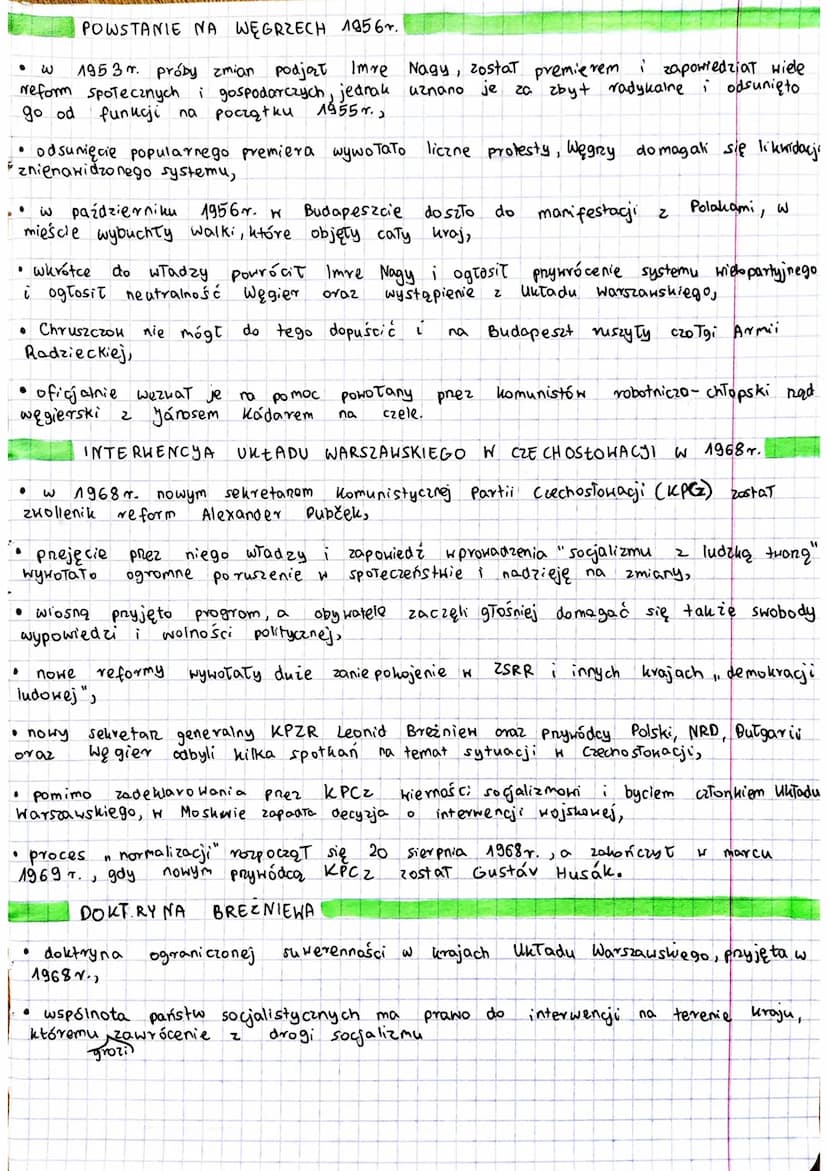 POWSTANIE NA WĘGRZECH 1956r.
• w 1953r. próby zmian podjął Imre Nagy, został premierem i zapowiedział wiele
reform społecznych i gospodarczych, jednak uznano je za zbyt radykalne i odsunięto
go od funkcji na początku 1955r.,
• odsunięcie popularnego premiera wywołało liczne protesty, Węgrzy domagali się likwidacji
znienawidzonego systemu,
• w październiku 1956r. w Budapeszcie doszło do manifestacji z Polakami, w
mieście wybuchły walki, które objęły cały kraj,
• wkrótce do władzy powrócił Imre Nagy i ogłosił przywrócenie systemu wielopartyjnego
i ogłosił neutralność Węgier oraz wystąpienie z Układu Warszawskiego,
• Chruszczow nie mógł do tego dopuścić i na Budapeszt ruszyły czołgi Armii
Radzieckiej,
• oficjalnie wezwał je na pomoc powołany przez komunistów robotniczo-chłopski rząd
węgierski z Jánosem Kádárem na czele.
INTERWENCJA UKŁADU WARSZAWSKIEGO W CZECHOSŁOWACJI W 1968r.
• w 1968r. nowym sekretarzem Komunistycznej Partii Czechosłowacji (KPCz) został
zwolennik reform Alexander Dubček,
• przejęcie przez niego władzy i zapowiedź wprowadzenia "socjalizmu z ludzką twarzą"
wywołało ogromne poruszenie w społeczeństwie i nadzieję na zmiany,
• wiosną przyjęto program, a obywatele zaczęli głośniej domagać się także swobody
wypowiedzi i wolności politycznej,
• nowe reformy wywołały duże zaniepokojenie w ZSRR i innych krajach „demokracji
ludowej",
• nowy sekretarz generalny KPZR Leonid Breżniew oraz przywódcy Polski, NRD, Bułgarii
oraz Węgier odbyli kilka spotkań na temat sytuacji w Czechosłowacji,
• pomimo zadeklarowania przez KPCz wierności socjalizmowi i byciem członkiem Układu
Warszawskiego, w Moskwie zapadła decyzja o interwencji wojskowej,
• proces „normalizacji" rozpoczął się 20 sierpnia 1968r., a zakończył w marcu
1969r., gdy nowym przywódcą KPCz został Gustáv Husák.
DOKTRYNA BREŻNIEWA
• doktryna ograniczonej suwerenności w krajach Układu Warszawskiego, przyjęta w
1968r.,
• wspólnota państw socjalistycznych ma prawo do interwencji na terenie kraju,
któremu zawrócenie z drogi socjalizmu
grozi